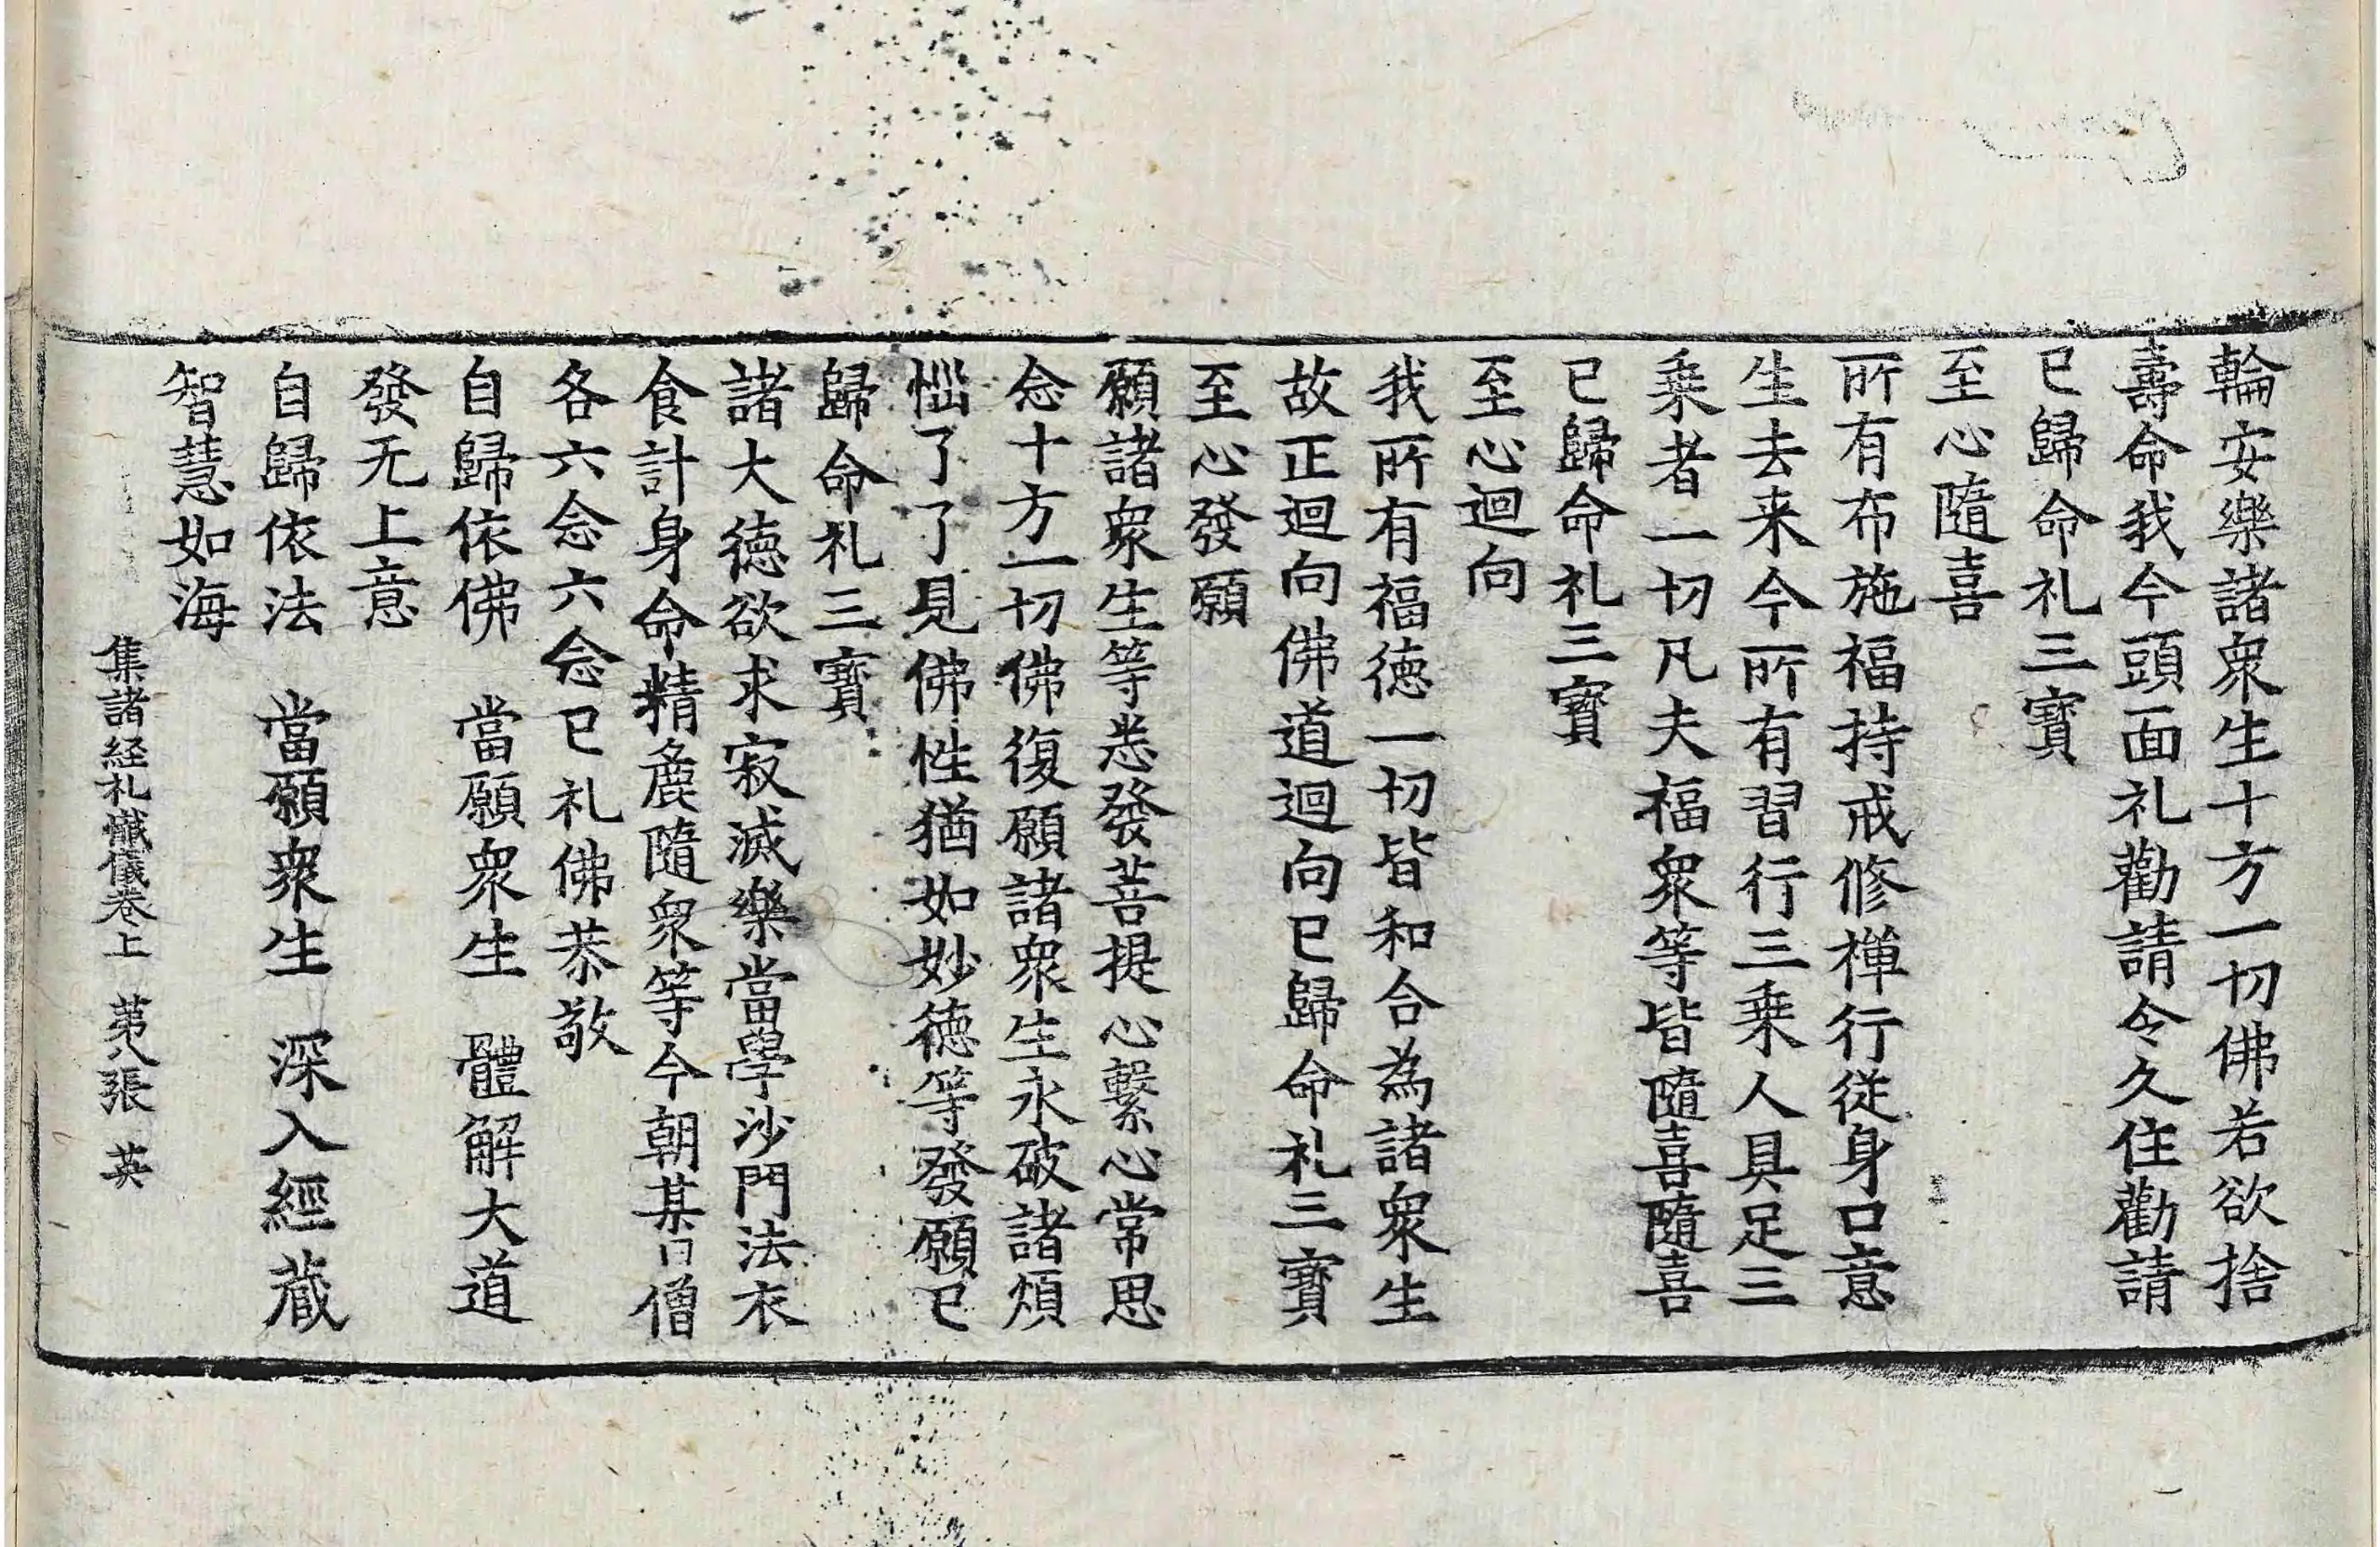 輪安樂諸衆生十方一切佛若欲捨
壽命我今頭面礼勸請令久住勸請
已歸命礼三寳
至心隨喜
所有布施福持戒修禅行從身口意
生去来今所有習行三乗人具足三
乗者一切凡夫福衆等皆隨喜隨喜
已歸命礼三寳
至心迴向
我所有福徳一切皆和合為諸衆生
故正迴向佛道迴向已歸命礼三寳
至心發願
願諸衆生等悉發菩提心繫心常思
念十方一切佛復願諸衆生永破諸煩
惱了了見佛性猶如妙徳等發願已
歸命礼三寳
諸大徳欲求寂滅樂當學沙門法衣
食計身命精麁隨衆等今朝某日僧
各六念六念已礼佛恭敬
自歸依佛　當願衆生　體解大道
發无上意
自歸依法　當願衆生　深入經蔵
智慧如海
集諸経礼懺儀卷上　第八張　英